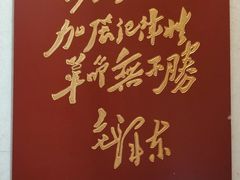 加强纪律性
革命無不勝
毛泽东